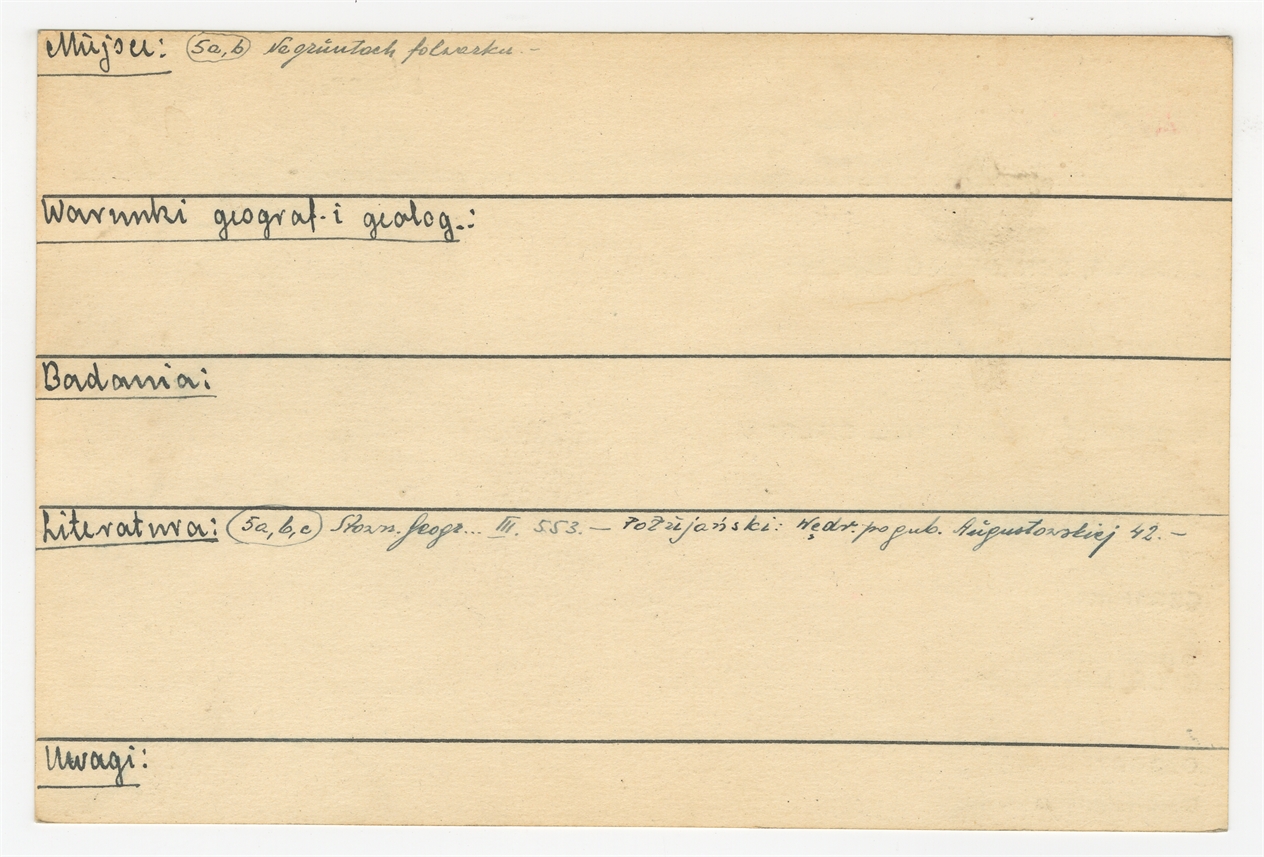 Miejsce: (5a,b) Na gruntach folwarku.–
Warunki geograf. i geolog.:
Badania:
Literatura: (5a,b,c) Słown. Geogr... III. 553. – Połujański: Wędr. po gub. Augustowskiej 42. –
Uwagi: